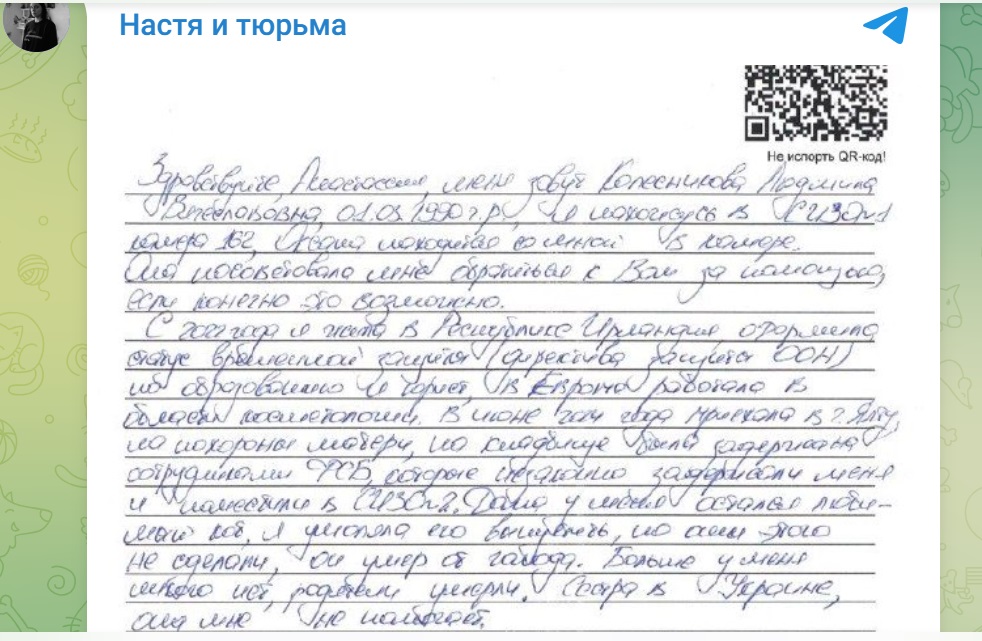 Настя и тюрьма
Не испорть QR-код!
Здравствуйте, Анастасия, меня зовут Колесникова Людмила
Вячеславовна, 01.03.1990 г.р., я нахожусь в СИЗО-1
камера 162, Оксана находится со мной в камере.
Она посоветовала мне обратиться к Вам за помощью,
если конечно это возможно.
С 2022 года я жила в Республике Ирландия, оформила
статус временной защиты (директива защиты ООН)
по образованию я юрист, в Европе работала в
области косметологии. В июне 2024 года приехала в г. Ялту,
на похороны матери, на кладбище была задержана
сотрудниками ФСБ, которые незаконно задержали меня
и поместили в СИЗО-2. Дома у меня остался люби-
мый кот, я умоляла его выпустить, но они этого
не сделали, он умер от голода. Больше у меня
никого нет, родители умерли. Сестра в Украине,
она мне не помогает.